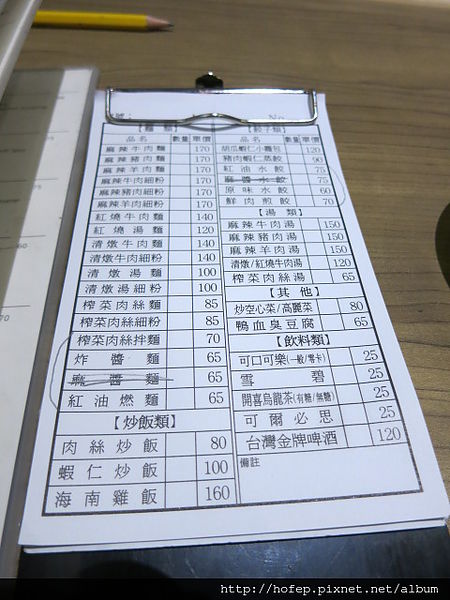 號: No
【麵類】
品名 數量 單價
麻辣牛肉麵 170
麻辣豬肉麵 170
麻辣羊肉麵 170
麻辣牛肉細粉 170
麻辣豬肉細粉 170
麻辣羊肉細粉 170
紅燒牛肉麵 140
紅燒湯麵 120
清燉牛肉麵 140
清燉牛肉細粉 140
清燉湯麵 100
清燉湯細粉 100
榨菜肉絲麵 85
榨菜肉絲細粉 85
榨菜肉絲拌麵 70
炸醬麵 65
麻醬麵 65
紅油燃麵 65
【炒飯類】
肉絲炒飯 80
蝦仁炒飯 100
海南雞飯 160
【餃子類】
品名 數量 單價
胡瓜蝦仁小籠包 120
豬肉蝦仁蒸餃 90
紅油水餃 75
麻醬水餃 70
原味水餃 60
鮮肉煎餃 70
【湯類】
麻辣牛肉湯 150
麻辣豬肉湯 150
麻辣羊肉湯 150
清燉/紅燒牛肉湯 120
榨菜肉絲湯 65
【其他】
炒空心菜/高麗菜 80
鴨血臭豆腐 65
【飲料類】
可口可樂(一般/零卡) 25
雪碧 25
開喜烏龍茶(有糖/無糖) 25
可爾必思 25
台灣金牌啤酒 120
備註
http://hofep.pixnet.net/album